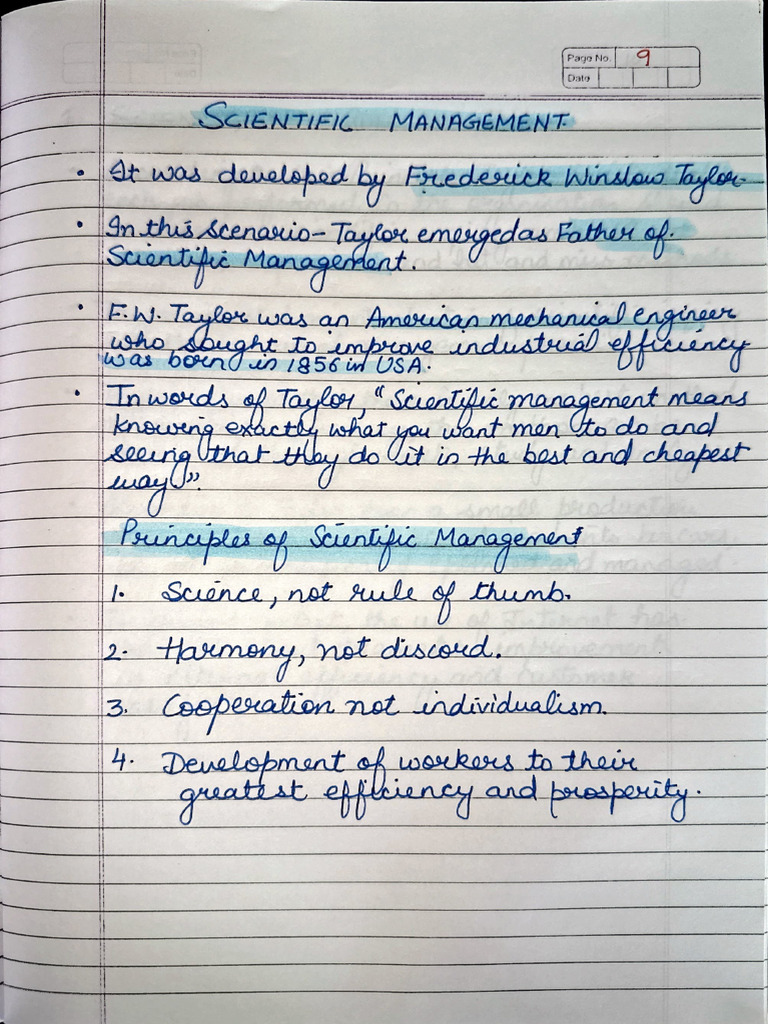 Page No. 9
Date
SCIENTIFIC MANAGEMENT
• It was developed by Frederick Winslow Taylor.
• In this scenario - Taylor emerged as Father of
Scientific Management.
• F.W. Taylor was an American mechanical engineer
who sought to improve industrial efficiency
was born in 1856 in USA.
• In words of Taylor, "Scientific management means
knowing exactly what you want men to do and
seeing that they do it in the best and cheapest
way".
Principles of Scientific Management
1. Science, not rule of thumb.
2. Harmony, not discord.
3. Cooperation not individualism.
4. Development of workers to their
greatest efficiency and prosperity.